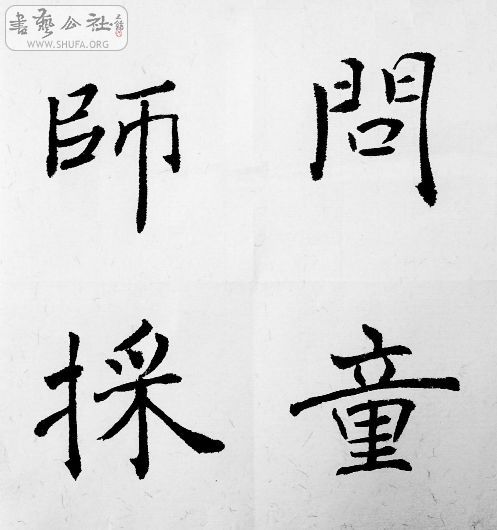 書藝公社
WWW.SHUFA.ORG
問童
師採